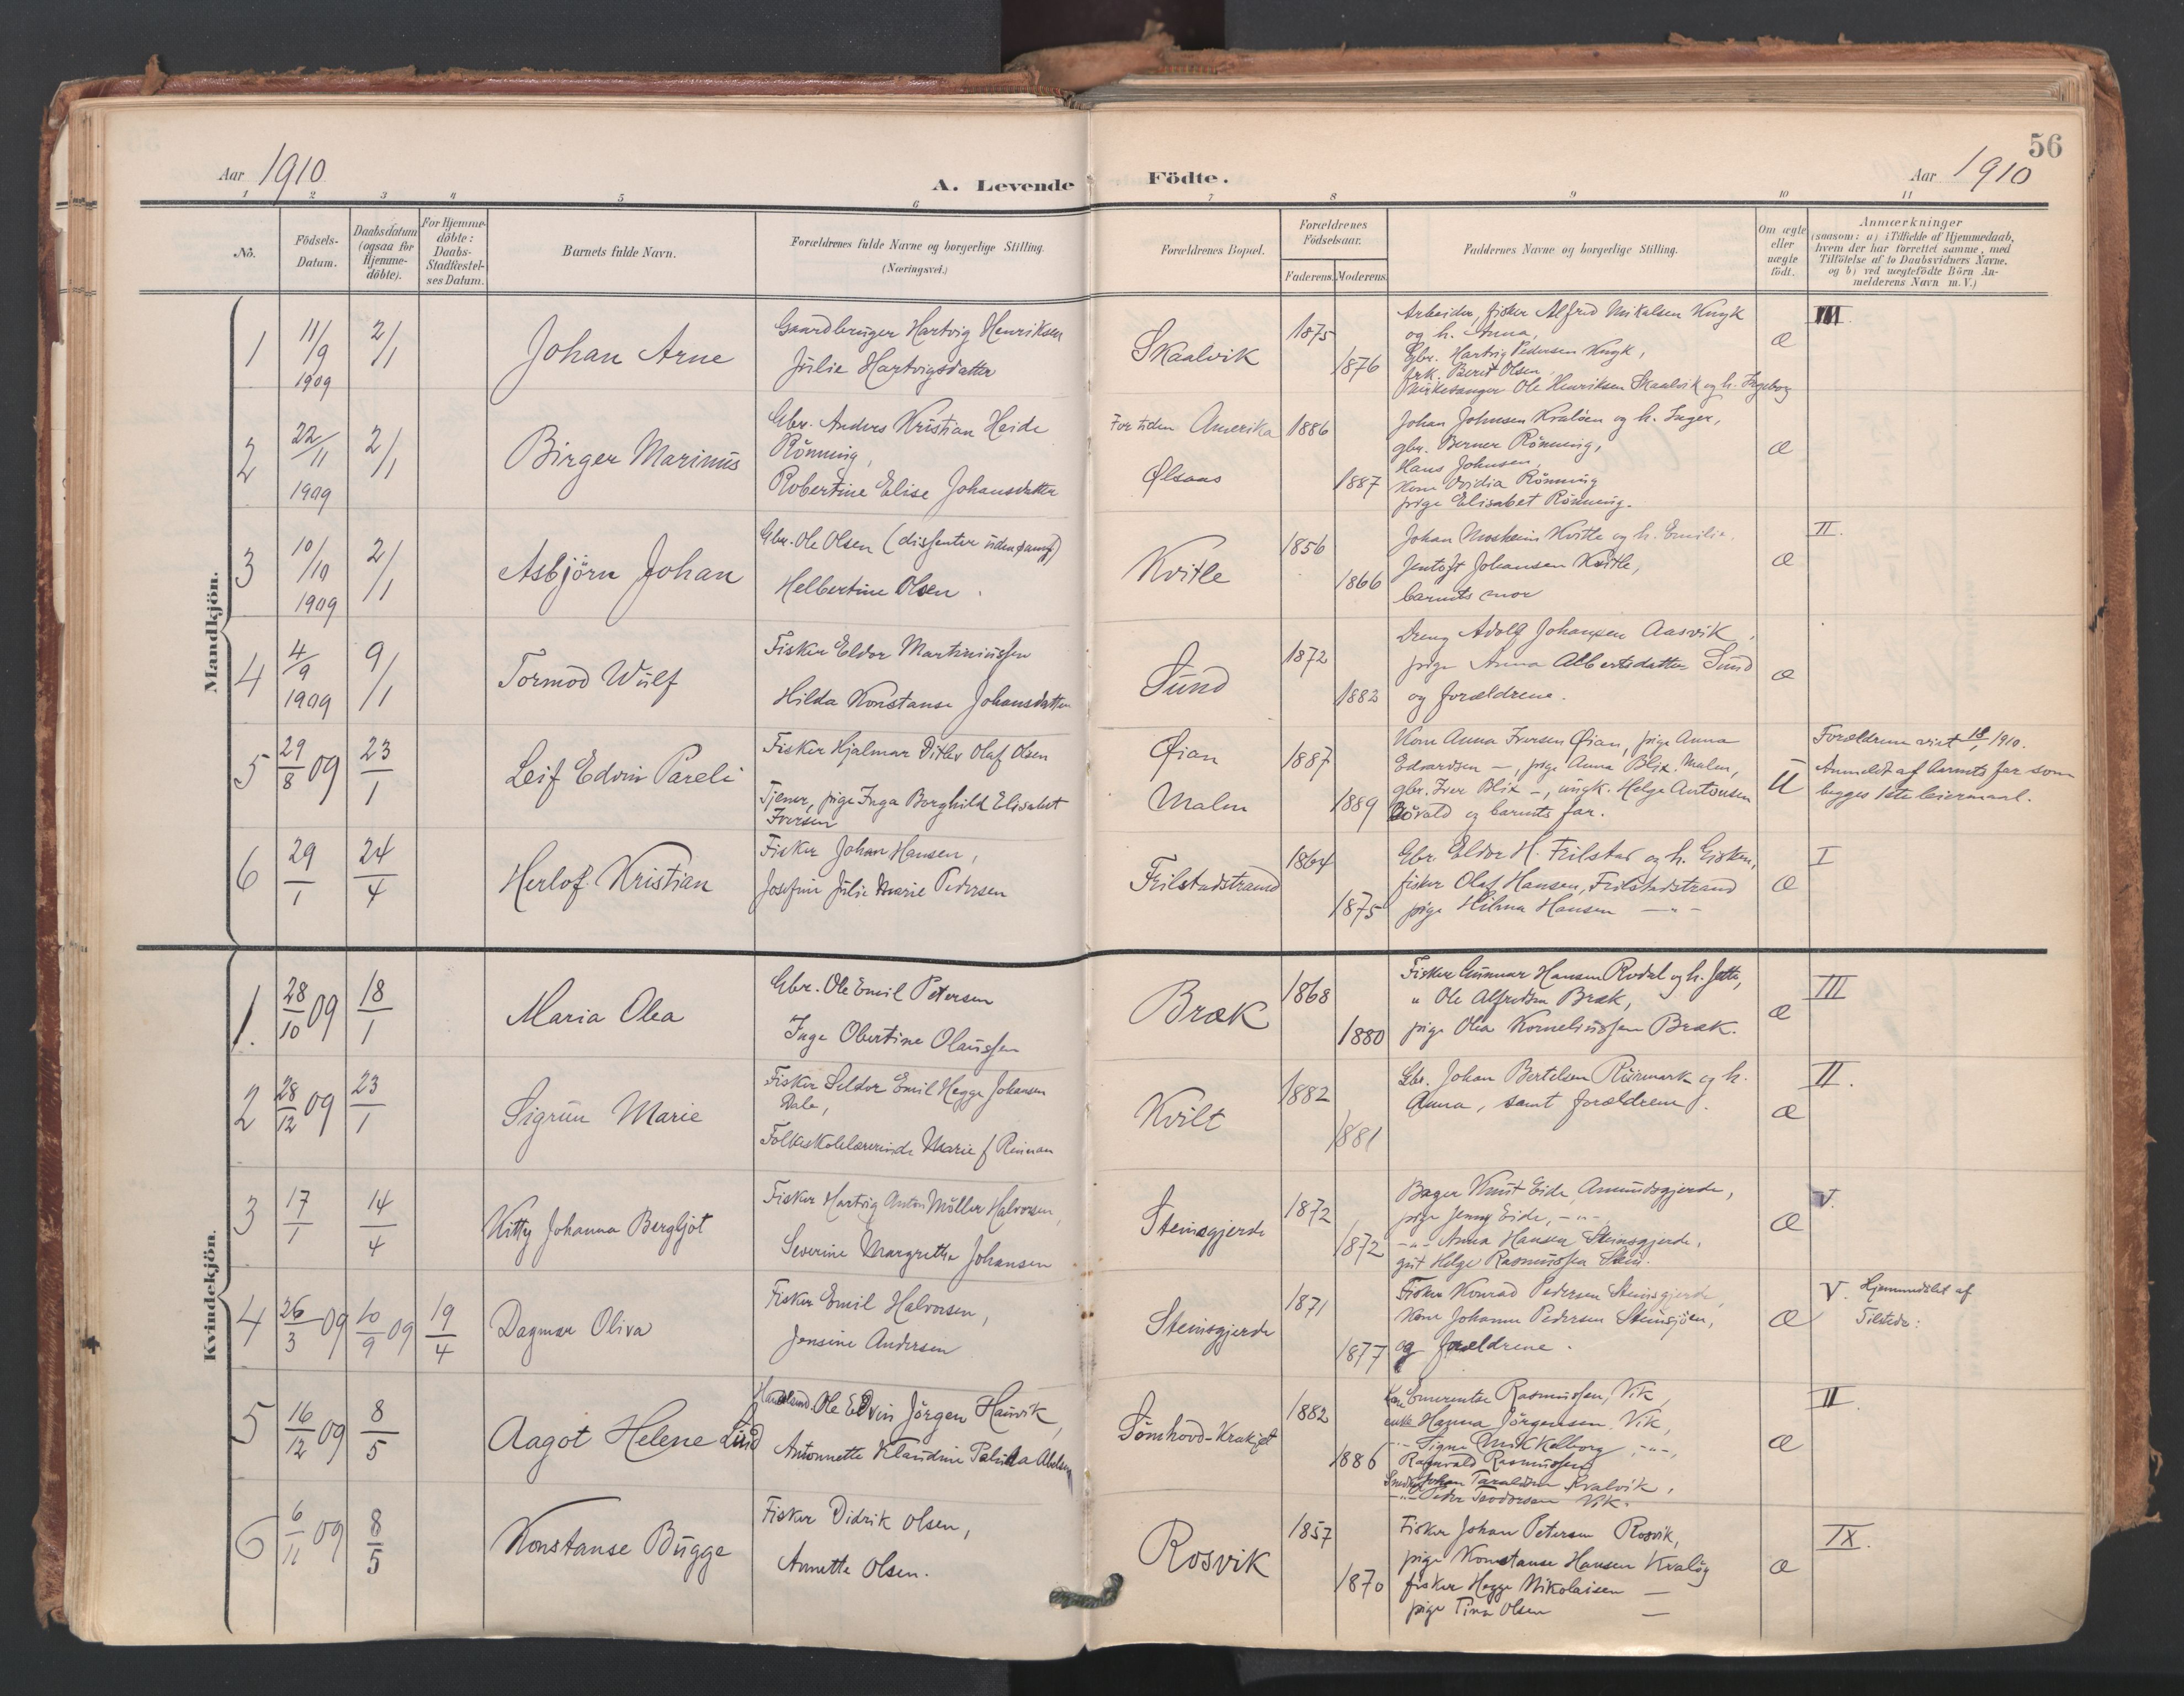 56
Aar 1910
A. Levende Födte.
Aar 1910
1 2 3 4 5 6 7 8 9 10 11
No.
Födsels-Datum.
Daabsdatum (ogsaa for Hjemme-döbte).
For Hjemme-döbte: Daabs-Stadfæstel-ses Datum.
Barnets fulde Navn.
Forældrenes fulde Navne og borgerlige Stilling.
(Næringsvei.)
Forældrenes Bopæl.
Forældrenes Födselsaar.
Faderens. Moderens.
Faddernes Navne og borgerlige Stilling.
Om ægte eller uægte födt.
Anmærkninger
(saasom: a) i Tilfælde af Hjemmedaab,
hvem der har forrettet samme, med
Tilföielse af to Daabsvidners Navne,
og b) ved uægtefödte Börn An-
melderens Navn m. V.)
Mandkjön.
1
11/9 1909
2/1
Johan Arne
Gaardbruger Hartvig Henriksen
Julie Hartvigsdatter
Skaalvik
1875
1876
Arbeider, fisker Alfred Mikalsen Knyk
og h. Anna,
Gbr. Hartvig Pedersen Knyk,
frk. Berit Olsen,
Kirkesanger Ole Henriksen Skaalvik og h. Ingeborg
æ
2
22/11 1909
2/1
Birger Marinus
Gbr. Anders Kristian Heide
Rönning,
Robertine Elise Johansdatter
For tiden Amerika
Ølsaas
1886
1887
Johan Johnsen Kvalöen og h. Inger,
gbr. Berner Rönning,
Hans Johnsen,
Kone Ovidia Rönning
pige Elisabet Rönning.
æ
3
10/10 1909
2/1
Asbjörn Johan
Gbr. Ole Olsen (dissenter uden samf)
Helbertine Olsen.
Kvitle
1856
1866
Johan Mosheim Kvitle og h. Emilie,
Jentoft Johansen Kvitle,
barnets mor
æ
II.
4
4/9 1909
9/1
Tormod Wulf
Fisker Eldor Martinussen
Hilda Konstanse Johansdatter
Sund
1872
1882
Dreng Adolf Johansen Aasvik,
pige Anna Albertsdatter Sund
og forældrene.
æ
5
29/8 09
23/1
Leif Edvin Pareli
Fisker Hjalmar Ditlev Olaf Olsen
Tjener, pige Inga Borghild Elisabet
Iversen
Øian
Malm
1887
1889
Kone Anna Iversen Øian, pige Anna
Edvardsen —, pige Anna Blix. Malm,
gbr. Iver Blix —, ungk. Helge Antonsen
og barnets far.
U
Forældrene viet 18/1 1910.
Anmeldt af barnets far som
begges 1ste leiermaal.
6
29/1
24/4
Herlof Kristian
Fisker Johan Hansen,
Josefine Julie Marie Pedersen
Frilstadstrand
1864
1875
Gbr. Eldor H. Frilstad og h. Gisken,
fisker Olaf Hansen, Frilstadstrand
pige Hilma Hansen — " —
æ
I
Kvindekjön.
1.
28/10 09
18/1
Maria Olea
Gbr. Ole Emil Petersen
Inga Obertine Olaussen
Bræk
1868
1880
Fisker Gunnar Hansen Rodal og h. Jette,
" Ole Alfredsen Bræk,
pige Olea Korneliussen Bræk.
æ
III
2
28/12 09
23/1
Sigrun Marie
Fisker Seldor Emil Hegge Johansen
Dale,
Folkeskolelærerinde Marie f Reinan
Kvilt
1882
1881
Gbr. Johan Bertelsen Rismark og h.
Anna, samt forældrene.
æ
II.
3
17/1
14/4
Kitty Johanna Bergljot
Fisker Hartvig Anton Möller Halvorsen,
Severine Margrethe Johansen
Steinsgjerde
1872
1872
Bager Knut Eide Amundsgjerde,
pige Jenny Eide, — " —
— " — Anna Hansen Steinsgjerde,
gut Helge Rasmussen Stein.
æ
V.
4
26/3 09
10/9 09
19/4
Dagmar Oliva
Fisker Emil Halvorsen,
Jensine Andersen
Steinsgjerde
1871
1877
Fisker Konrad Pedersen Steinsgjerde,
Kone Johanna Pedersen Steinsjöen,
og forældrene.
æ
V. Hjemmedöbt af
5
16/12 09
8/5
Aagot Helene Lund
Ole Edvin Jörgen Hauvik,
Antonnette Klaudine Abelsen
Sömhovd-Krakfjet
1882
1886
Emerentse Rasmussen, Vik,
enke Hanna Jörgensen Vik,
— Signe Mikkelborg — " —,
Ragnvald Rasmussen
Smed Johan Taraldsen Kvalvik,
— " — Peder Teodorsen Vik.
æ
II.
6
6/11 09
8/5
Konstanse Bugge
Fisker Didrik Olsen,
Annette Olsen.
Rosvik
1857
1870
Fisker Johan Petersen Rosvik,
pige Konstanse Hansen Kvalöy
fisker Hegge Nikolaisen —
pige Tina Olsen —
æ
IX.